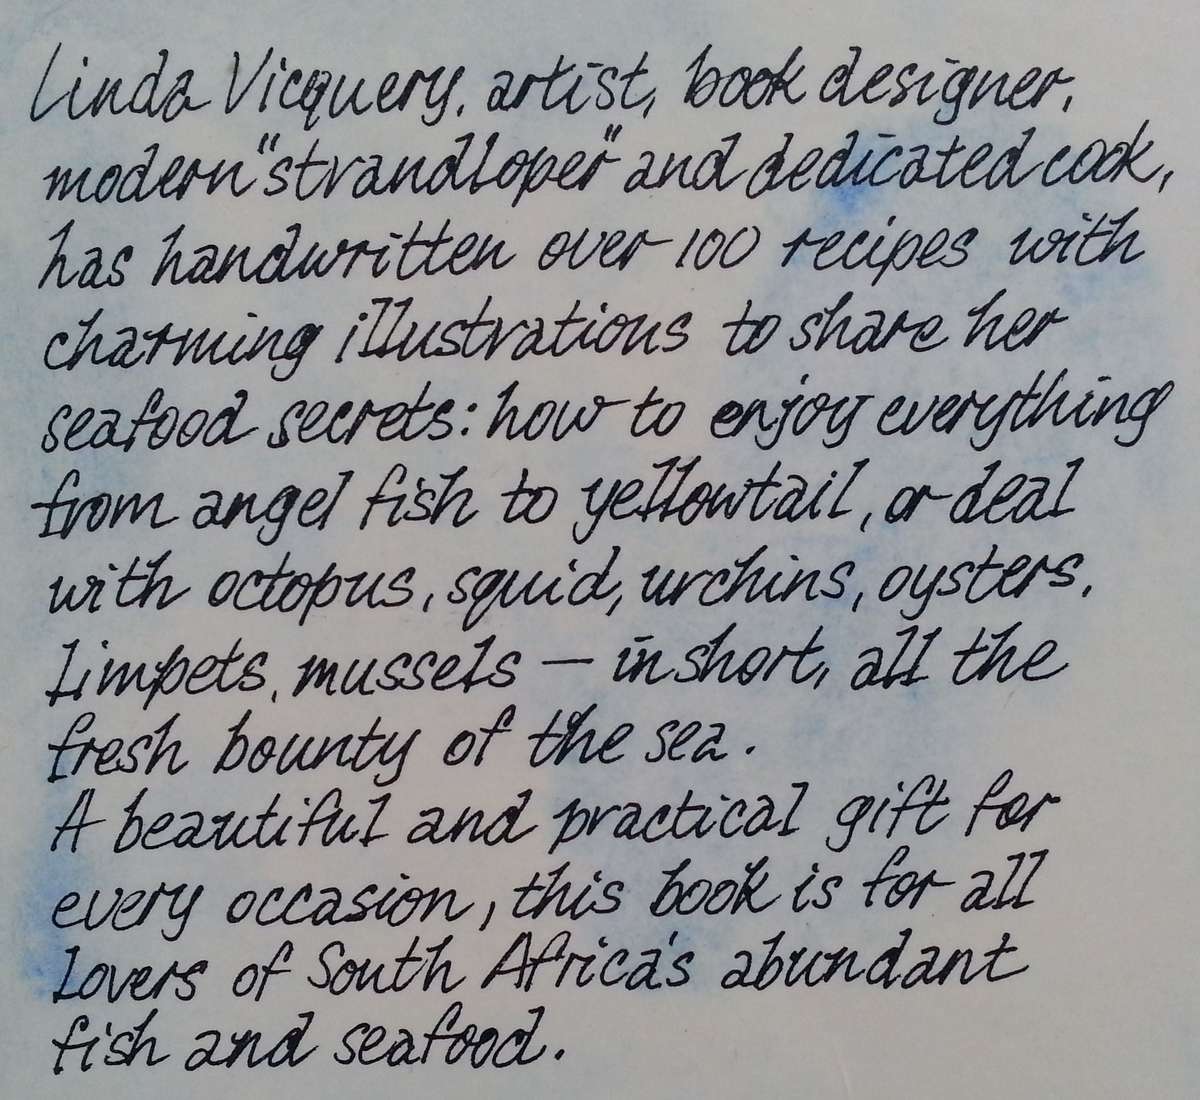 Linda Vicquery, artist, book designer,
modern "strandloper" and dedicated cook,
has handwritten over 100 recipes with
charming illustrations to share her
seafood secrets: how to enjoy everything
from angel fish to yellowtail, or deal
with octopus, squid, urchins, oysters,
limpets, mussels — in short, all the
fresh bounty of the sea.
A beautiful and practical gift for
every occasion, this book is for all
lovers of South Africa's abundant
fish and seafood.